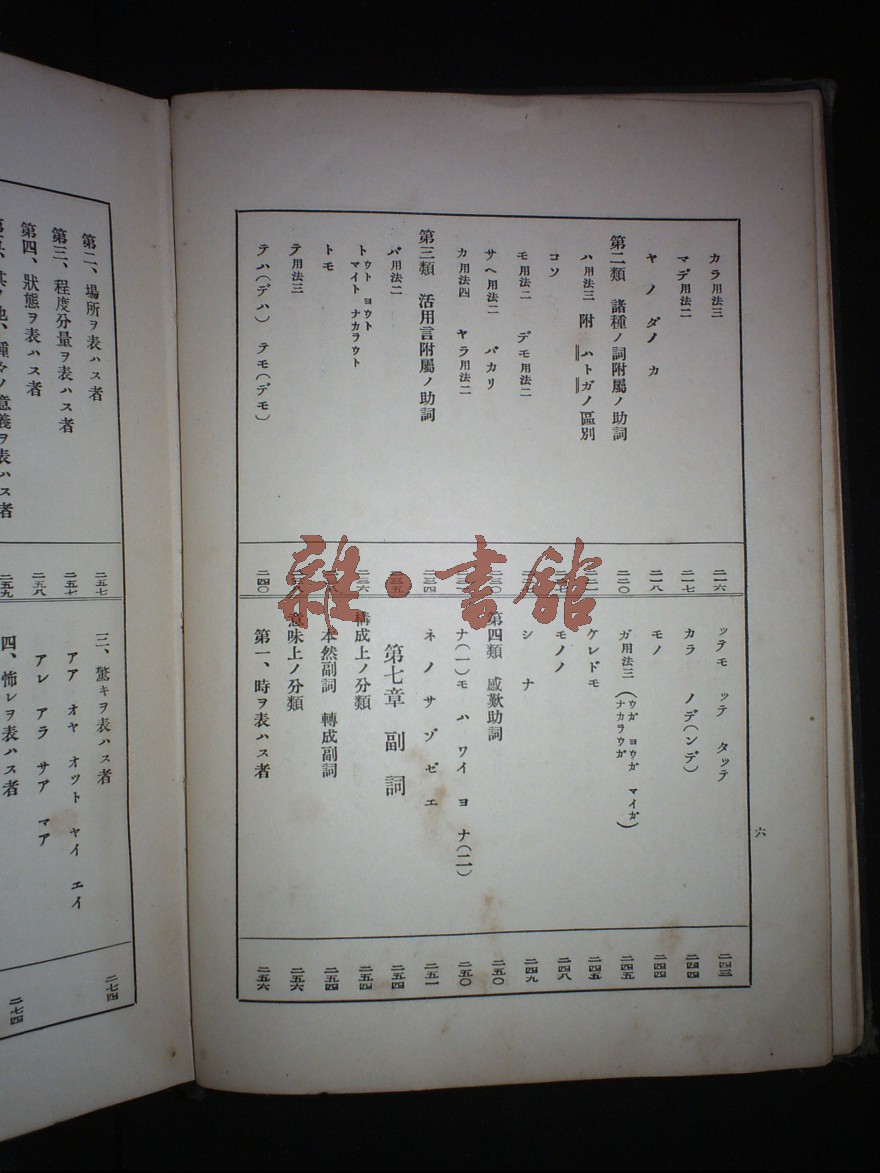 カラ用法三 二一六
マデ用法二 二一七
ヤ ノ ダノ カ 二一八
第二類 諸種ノ詞附屬ノ助詞 二二〇
ハ用法三 附 ハトガノ區別
コソ
モ用法二 デモ用法二
サヘ用法二 バカリ 二三〇
カ用法四 ヤラ用法二
第三類 活用言附屬ノ助詞 二三四
バ用法二 二三五
ト ウト ヨウト
マイト ナカラウト 二三六
トモ
テ用法三
テハ(デハ) テモ(デモ) 二四〇
ツテモ ツテ タツテ 二四三
カラ ノデ(ンデ) 二四四
モノ 二四四
ガ用法三(ウガ ヨウガ マイガ
ナカラウガ) 二四五
ケレドモ 二四五
モノノ 二四八
シ ナ 二四九
第四類 感歎助詞 二五〇
ナ(一)モ ハ ワイ ヨ ナ(二) 二五〇
ネ ノ サ ゾ ゼ エ 二五一
第七章 副詞 二五四
構成上ノ分類 二五四
本然副詞 轉成副詞 二五四
意味上ノ分類 二五六
第一、時ヲ表ハス者 二五六
六
雜・書館
第二、場所ヲ表ハス者 二五七
第三、程度分量ヲ表ハス者 二五七
第四、狀態ヲ表ハス者 二五八
第五、其ノ他、種々ノ意義ヲ表ハス者 二五九
三、驚キヲ表ハス者 二七四
アア オヤ オツト ヤイ エイ
アレ アラ サア マア
四、怖レヲ表ハス者 二七四